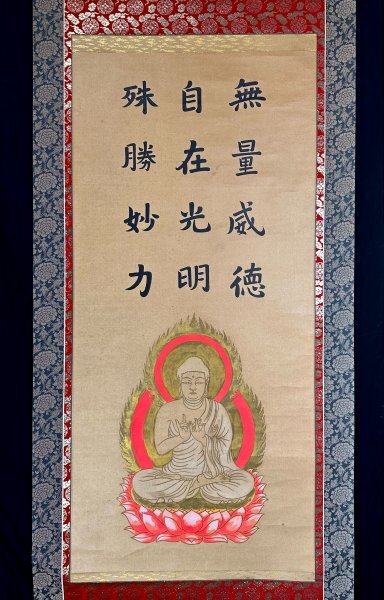 無量威德
自在光明
殊勝妙力